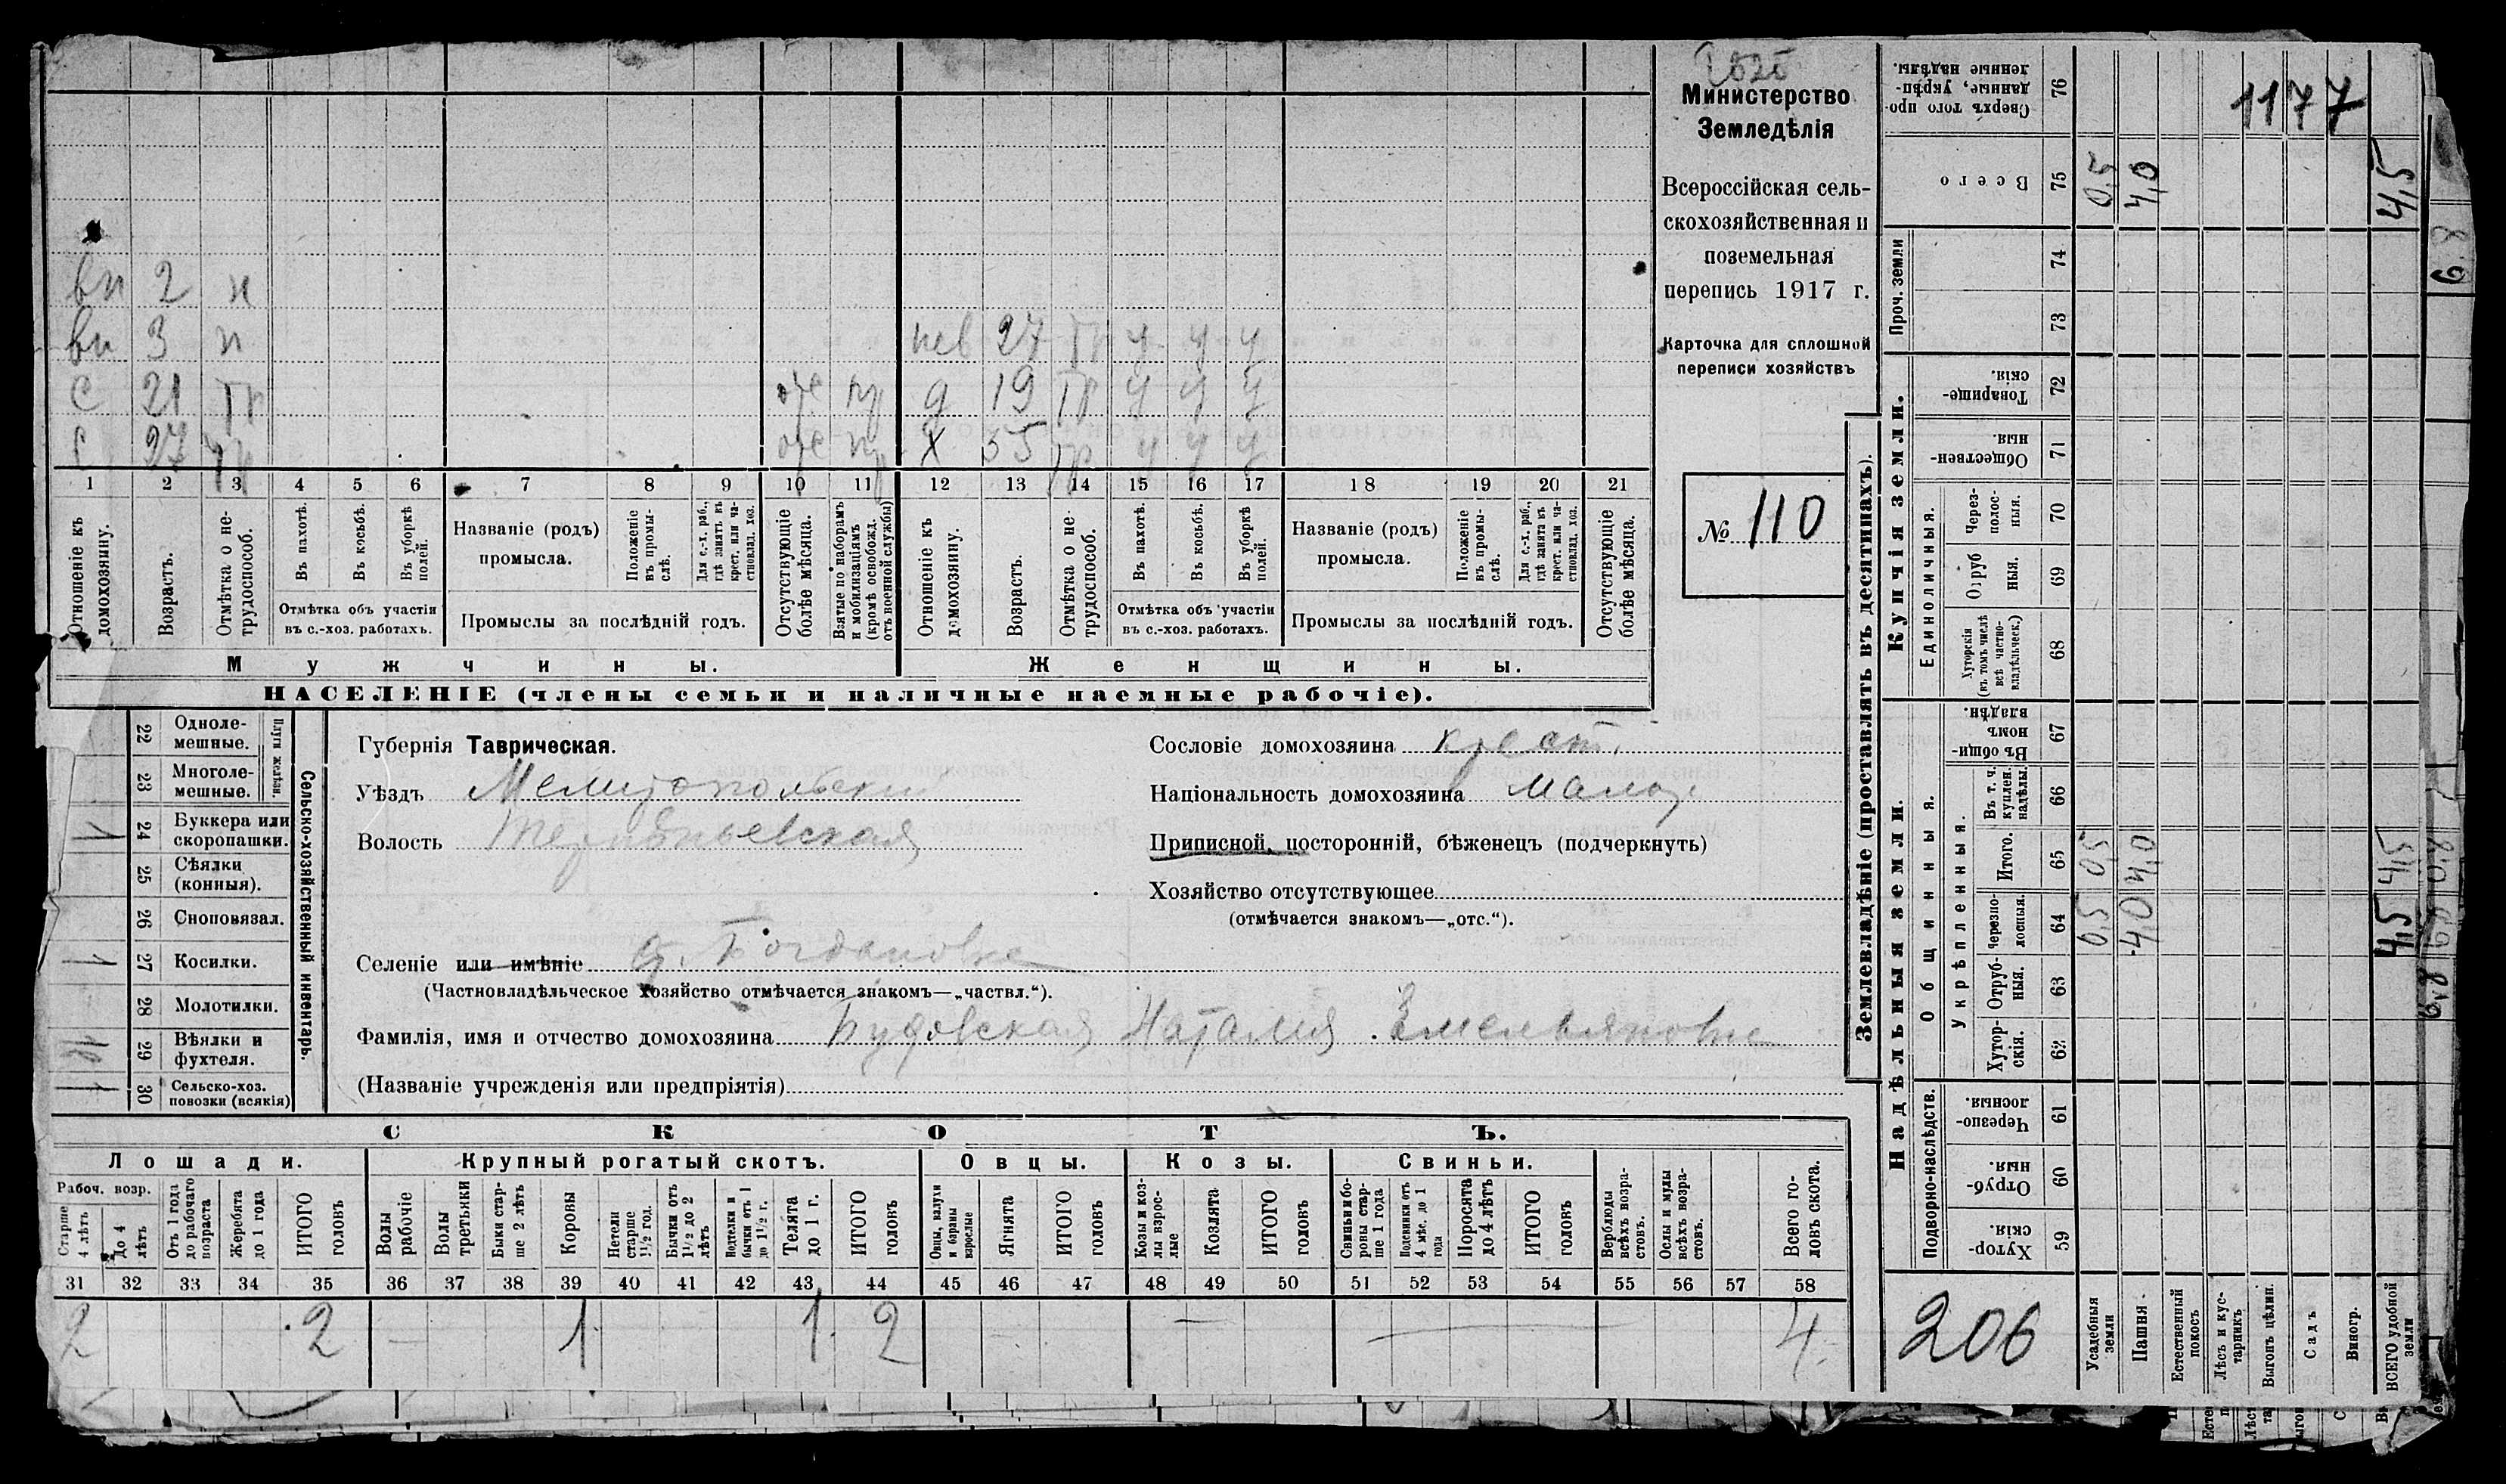 Министерство
Земледѣлія
Всероссійская сель-
скохозяйственная и
поземельная
перепись 1917 г.
Карточка для сплошной
переписи хозяйствъ
№ 110
1177
вн 2 н
вн 3 н
нев 27 тр у у у
с 21 тр
д 19 тр у у у
с 27 тр
х 55 тр у у у
1 2 3 4 5 6 7 8 9 10 11 12 13 14 15 16 17 18 19 20 21
Отношеніе къ домохозяину.
Возрастъ.
Отмѣтка о не-трудоспособ.
Въ пахотѣ.
Въ косьбѣ.
Въ уборкѣ полей.
Отмѣтка объ участіи
въ с.-хоз. работахъ.
Названіе (родъ)
промысла.
Положеніе въ промы-слѣ.
Для с.-х. раб., гдѣ занятъ въ крест. или ча-стновлад. хоз.
Промыслы за послѣдній годъ.
Отсутствующіе болѣе мѣсяца.
Взятые по наборамъ и мобилизаціямъ (кромѣ освобожд. отъ военной службы)
Отношеніе къ домохозяину.
Возрастъ.
Отмѣтка о не-трудоспособ.
Въ пахотѣ.
Въ косьбѣ.
Въ уборкѣ полей.
Отмѣтка объ участіи
въ с.-хоз. работахъ.
Названіе (родъ)
промысла.
Положеніе въ промы-слѣ.
Для с.-х. раб., гдѣ занятъ въ крест. или ча-стновлад. хоз.
Промыслы за послѣдній годъ.
Отсутствующіе болѣе мѣсяца.
Мужчины.
Женщины.
НАСЕЛЕНІЕ (члены семьи и наличные наемные рабочіе).
Сельско-хозяйственный инвентарь.
Плуги желѣзн.
22 Одноле-мешные.
23 Многоле-мешные.
1 24 Буккера или скоропашки.
25 Сѣялки (конныя).
26 Сноповязал.
1 27 Косилки.
28 Молотилки.
29 Вѣялки и фухтеля.
1 30 Сельско-хоз. повозки (всякія)
Губернія Таврическая.
Уѣздъ Мелитопольскій
Волость
Селеніе или имѣніе с. Богдановка
(Частновладѣльческое хозяйство отмѣчается знакомъ—„частвл.“).
Фамилія, имя и отчество домохозяина Будовская Наталия Емельяновна
(Названіе учрежденія или предпріятія)
Сословіе домохозяина крест.
Національность домохозяина Малор
Приписной, посторонній, бѣженецъ (подчеркнуть)
Хозяйство отсутствующее
(отмѣчается знакомъ—„отс.“).
СКОТЪ.
Лошади.
Крупный рогатый скотъ.
Овцы.
Козы.
Свиньи.
Рабоч. возр.
Старше 4 лѣтъ
До 4 лѣтъ
Отъ 1 года до рабочаго возраста
Жеребята до 1 года
ИТОГО головъ
Волы рабочіе
Волы третьяки
Быки стар-ше 2 лѣтъ
Коровы
Нетели старше 1½ год.
Бычки отъ 1½ до 2 лѣтъ
Подтелки и бычки отъ 1 до 1½ г.
Телята до 1 г.
ИТОГО головъ
Овцы, валухи и бараны взрослые
Ягнята
ИТОГО головъ
Козы и коз-лы взрос-лые
Козлята
ИТОГО головъ
Свиньи и бо-ровы стар-ше 1 года
Подсвинки отъ 4 мѣс. до 1 года
Поросята до 4 лѣтъ
ИТОГО головъ
Верблюды всѣхъ возра-стовъ.
Ослы и мулы всѣхъ возра-стовъ.
Всего го-ловъ скота.
31 32 33 34 35 36 37 38 39 40 41 42 43 44 45 46 47 48 49 50 51 52 53 54 55 56 57 58
2 2 — 1 1 2 — — — 4
Землевладѣніе (проставлять въ десятинахъ).
Купчія земли.
Надѣльныя земли.
Проч. земли
Единоличныя.
Общинныя.
Укрѣпленныя.
Подворно-наслѣдств.
76 Сверхъ того про-данные, укрѣп-ленные надѣлы.
75 Всего 0,5 4,0 4,5
74
73
72 Товарище-скія.
71 Обществен-ныя.
70 Через-полос-ныя.
69 Отруб-ныя.
68 Хуторскія (въ томъ числѣ всѣ частно-владѣльческ.)
67 Въ общин-номъ владѣн.
66 Въ т. ч. куплен. надѣлы.
65 Итого. 0,5 4,0 4,5
64 Черезпо-лосныя. 0,5 4,0 4,5
63 Отруб-ныя.
62 Хутор-скія.
61 Черезпо-лосныя.
60 Отруб-ныя.
59 Хутор-скія.
206
Усадебныя земли
Пашня
Естественный покосъ
Лѣсъ и кус-тарникъ
Выгонъ цѣлин.
Садъ
Виногр.
ВСЕГО удобной земли